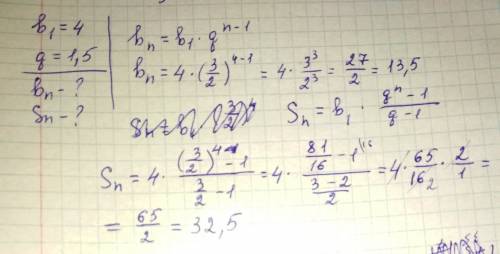 b₁ = 4
q = 1,5
bₙ - ?
Sₙ - ?
bₙ = b₁ · qⁿ⁻¹
bₙ = 4 · (3/2)⁴⁻¹ = 4 · 3³/2³ = 27/2 = 13,5
Sₙ = b₁ · (qⁿ - 1)/(q - 1)
Sₙ = 4 · ((3/2)⁴ - 1)/(3/2 - 1) = 4 · (81/16 - 1)/((3 - 2)/2) = 4 · 65/16 · 2/1 =
= 65/2 = 32,5